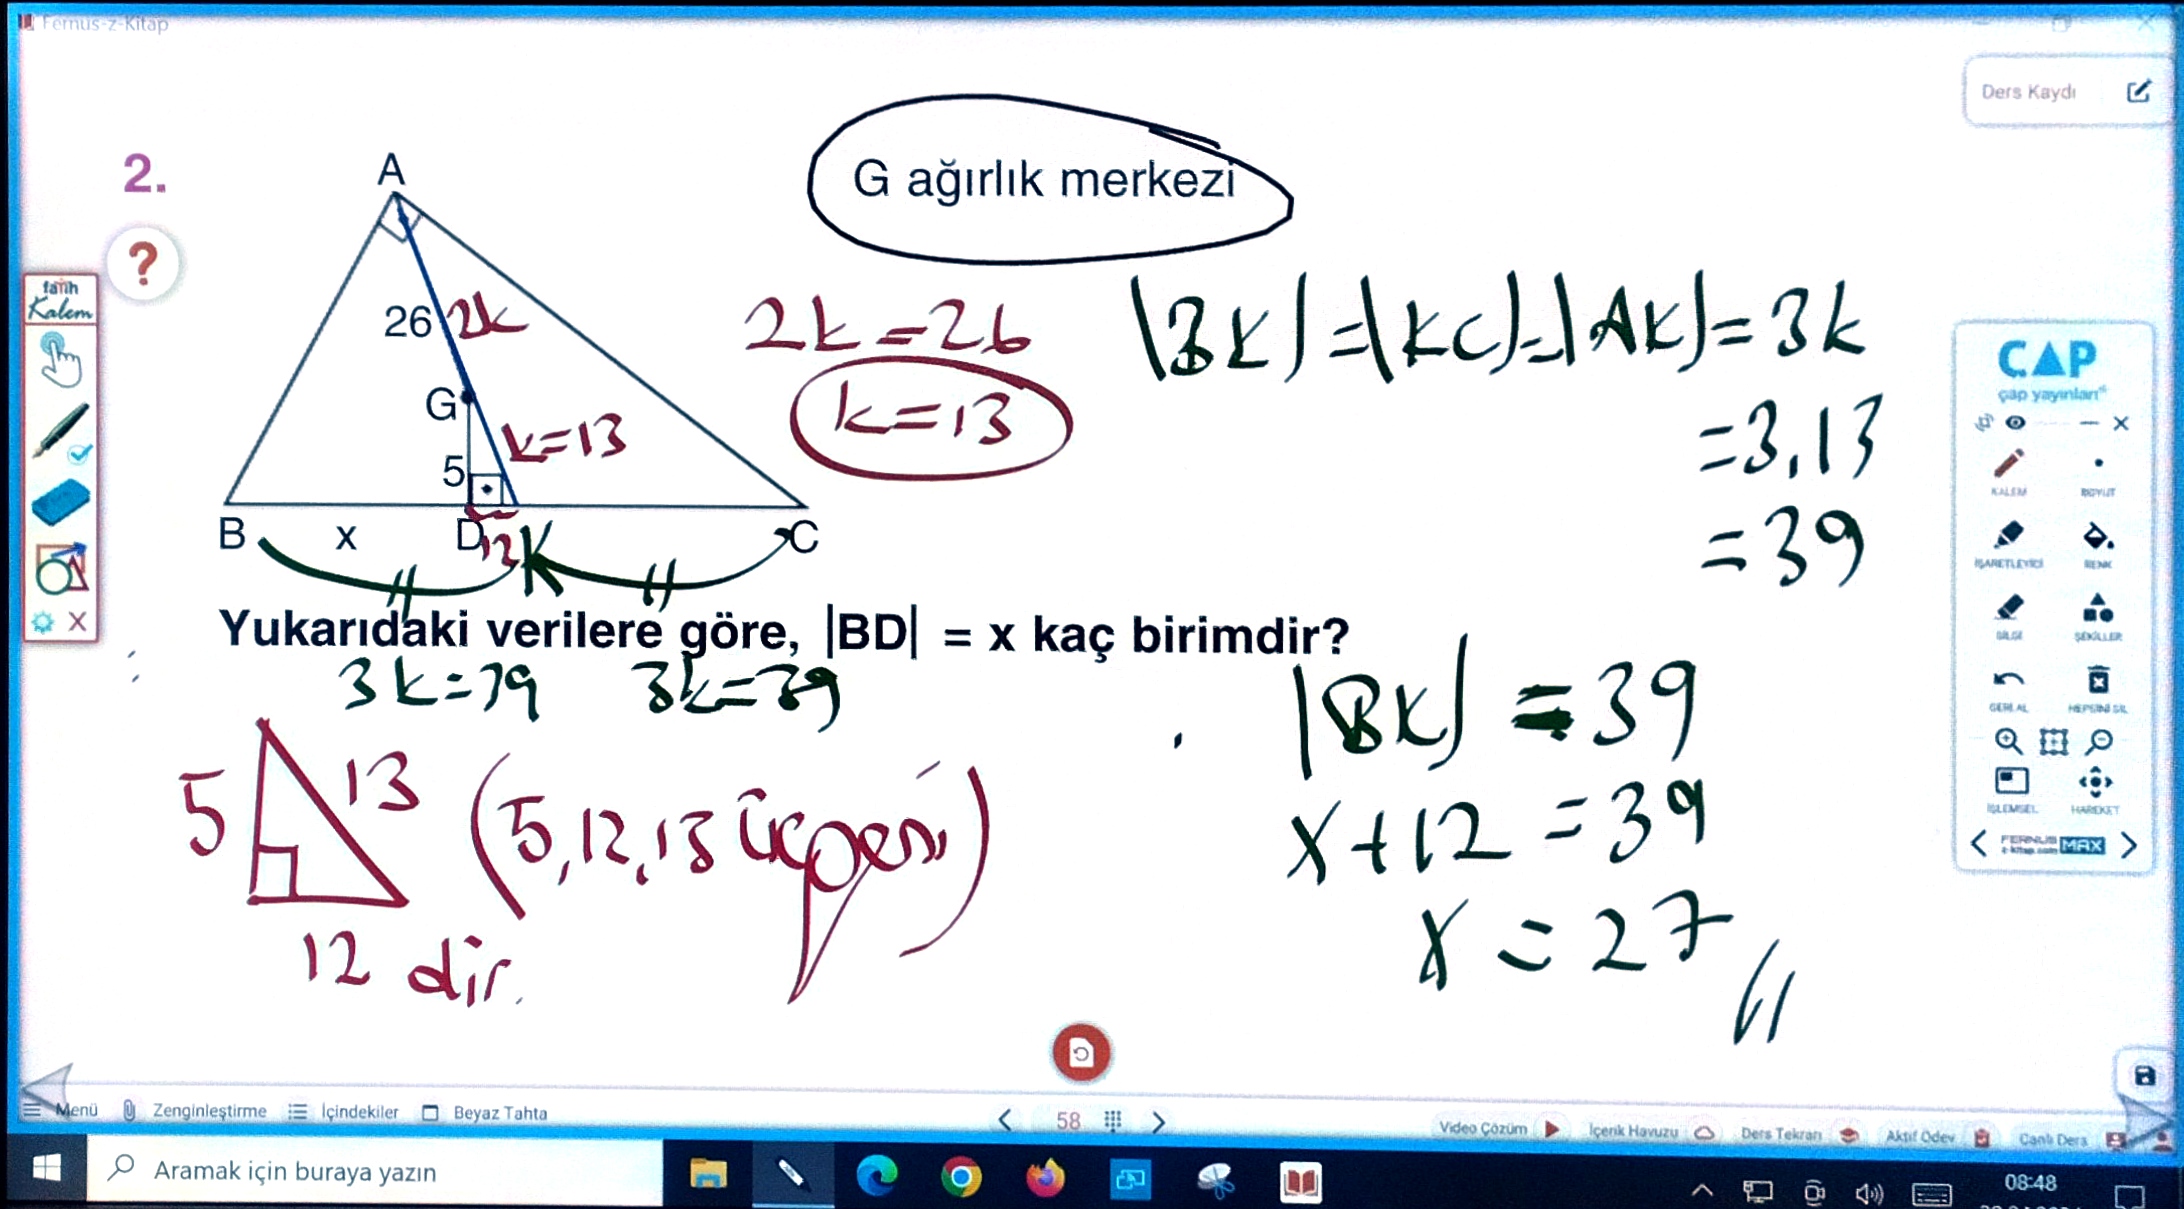 Fernus-z-Kitap
Ders Kaydı
2.
?
A
G ağırlık merkezi
26
2k
G
k=13
5
B
x
D
12
K
C
2k=26
k=13
|BK|=|KC|=|AK|=3k
=3.13
=39
Yukarıdaki verilere göre, |BD| = x kaç birimdir?
3k=39
3k=39
5
13
12 dir.
(5,12,13 üçgeni)
|BK|=39
x+12=39
x=27
fatih
Kalem
ÇAP
çap yayınları
KALEM
BOYUT
İŞARETLEYİCİ
RENK
SİLGİ
ŞEKİLLER
GERİ AL
HEPSİNİ SİL
İŞLEMSEL
HAREKET
FERNUS
z-kitap.com
MAX
Menü
Zenginleştirme
İçindekiler
Beyaz Tahta
58
Video Çözüm
İçerik Havuzu
Ders Tekrarı
Aktif Ödev
Canlı Ders
Aramak için buraya yazın
08:48